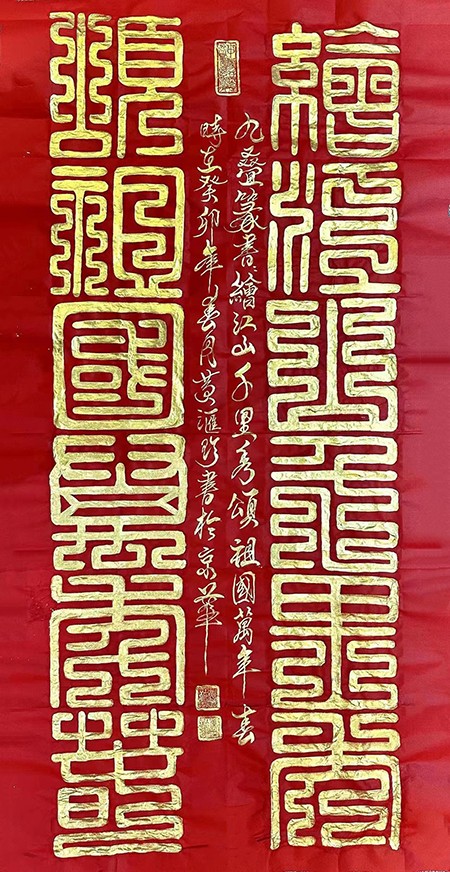 繪江山千里秀
九疊篆書繪江山千里秀頌祖國萬年春
時在癸卯年春月黄滙珍書於京華
頌祖國萬年春